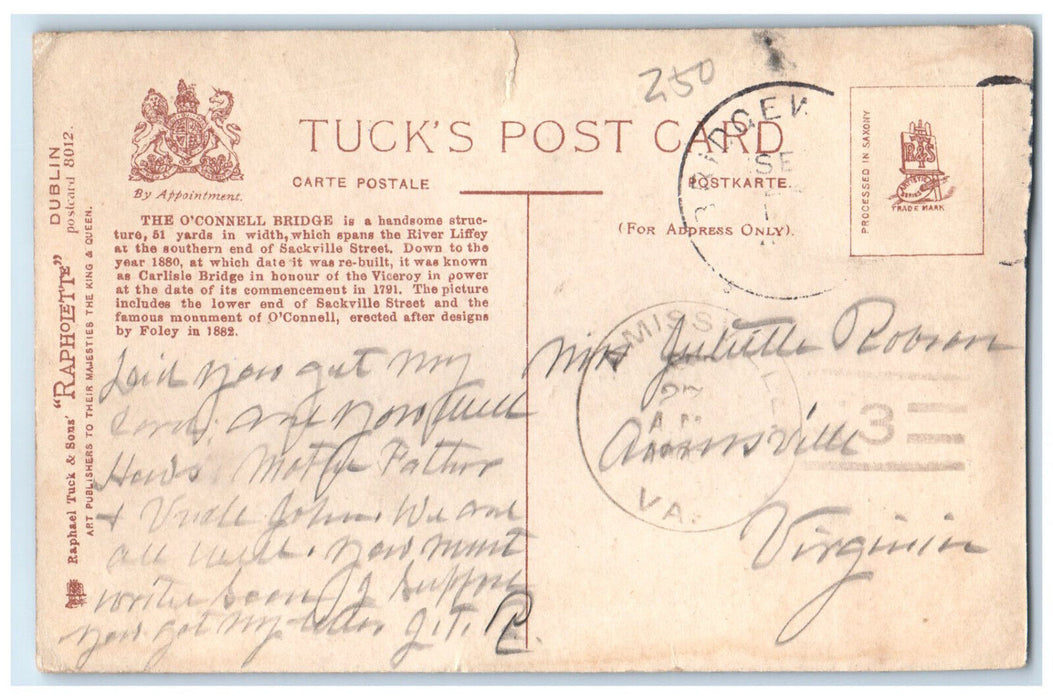 250
TUCK'S POST CARD
CARTE POSTALE
POSTKARTE.
(FOR ADDRESS ONLY).
By Appointment.
THE O'CONNELL BRIDGE is a handsome struc-
ture, 51 yards in width, which spans the River Liffey
at the southern end of Sackville Street. Down to the
year 1880, at which date it was re-built, it was known
as Carlisle Bridge in honour of the Viceroy in power
at the date of its commencement in 1791. The picture
includes the lower end of Sackville Street and the
famous monument of O'Connell, erected after designs
by Foley in 1882.
Raphael Tuck & Sons' "RAPHOLETTE" DUBLIN
postcard 8012.
ART PUBLISHERS TO THEIR MAJESTIES THE KING & QUEEN.
PROCESSED IN SAXONY
TRADE MARK
SE
MISS
VA.
3
you got my
card. are you well
Hows Mother Father
+ Uncle John. We are
all well. you must
write soon I suppose
you got my letter J. T. R.
Miss Juliette Robson
Virginia